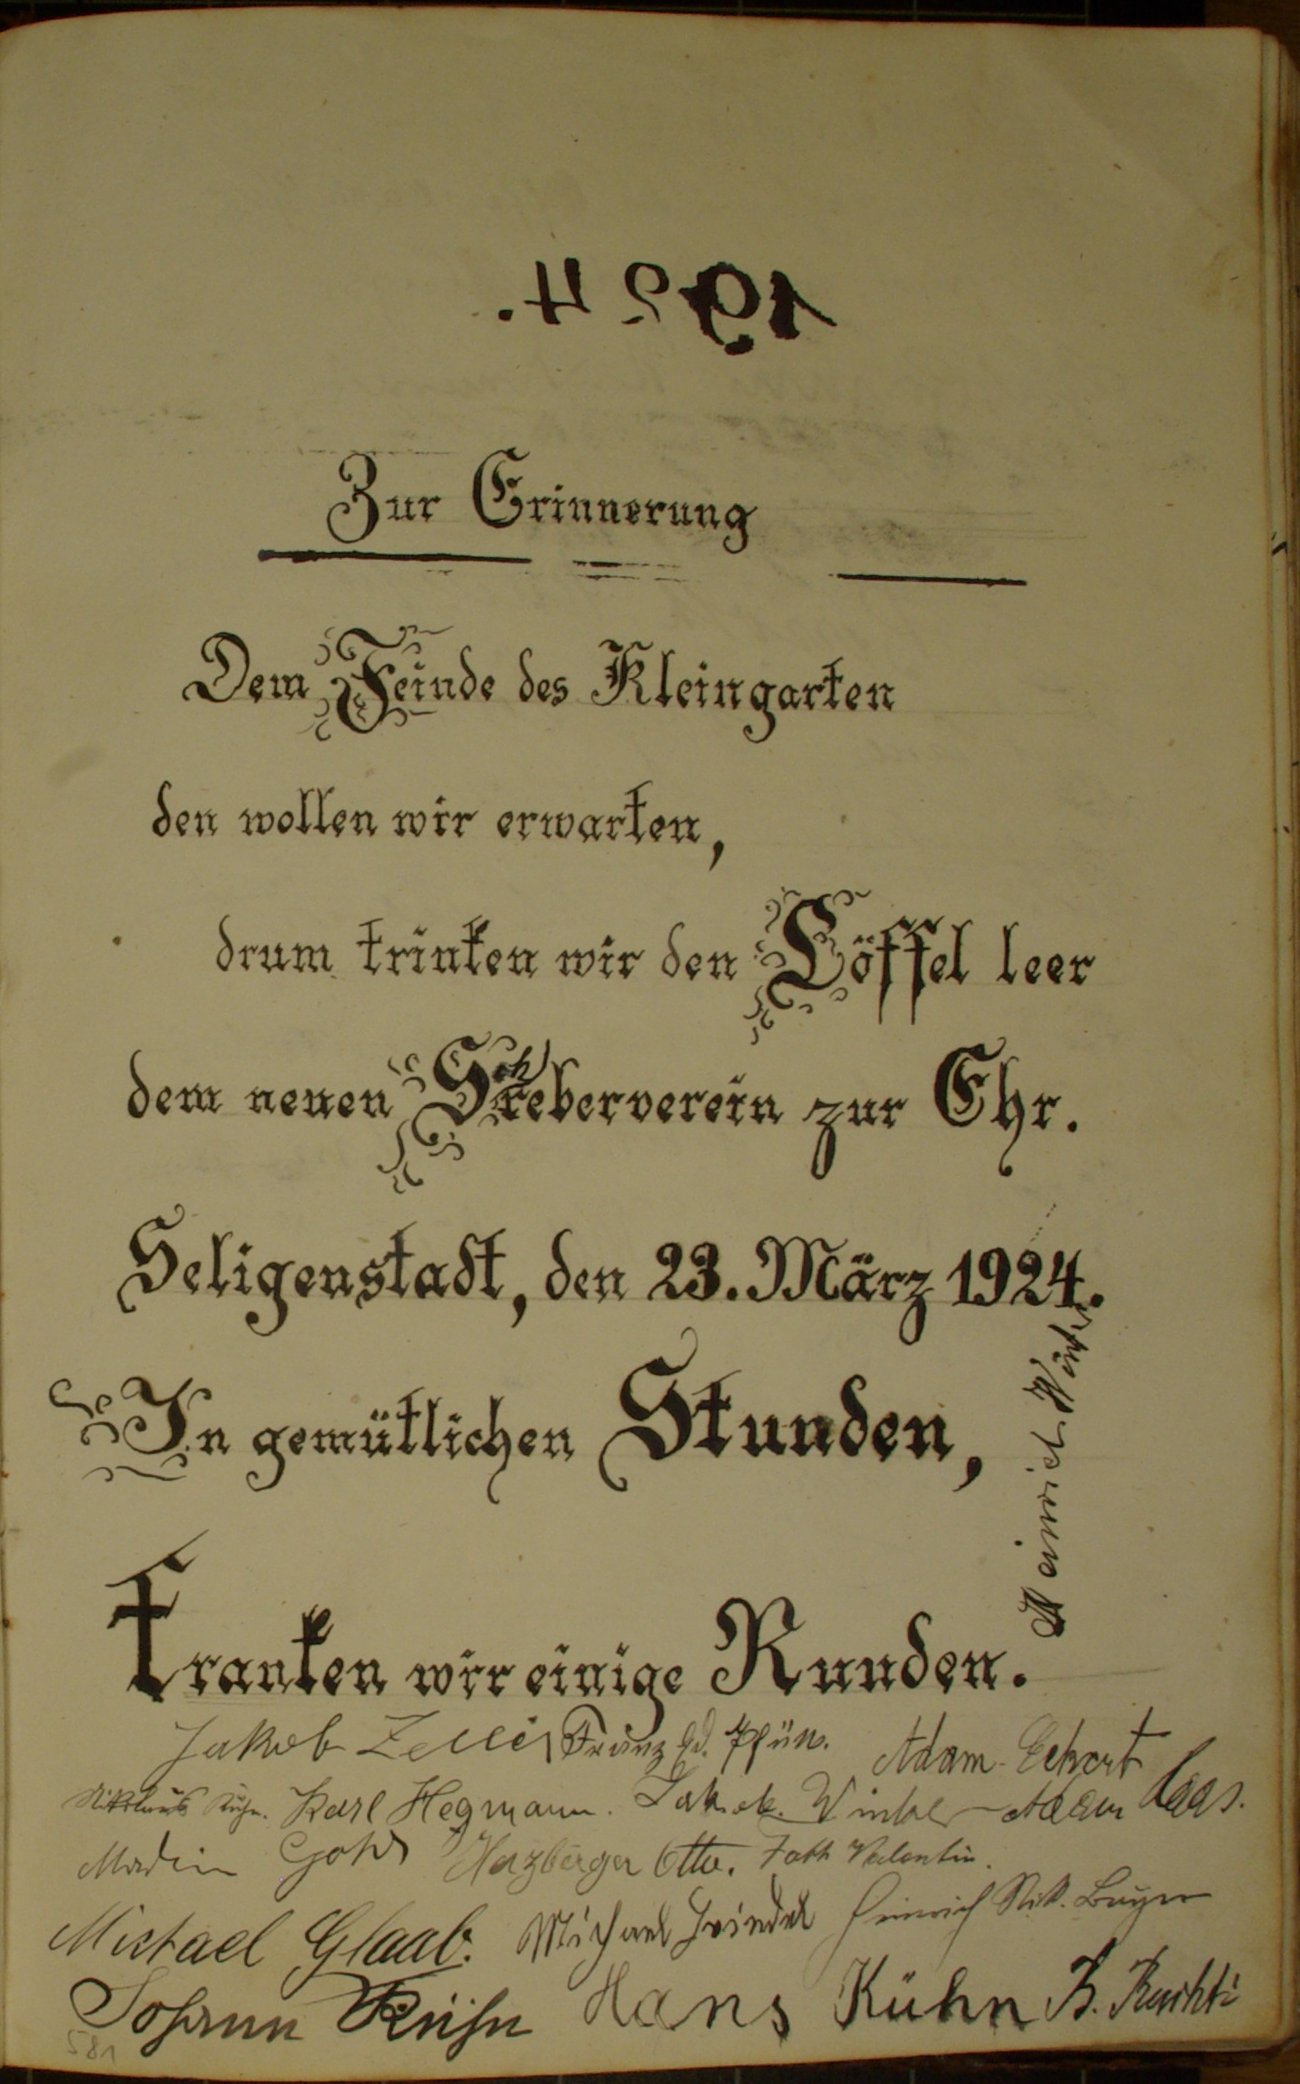 1924.
Zur Erinnerung
Dem Feinde des Kleingarten
den wollen wir erwarten,
drum trinken wir den Löffel leer
dem neuen Schreberverein zur Ehr.
Seligenstadt, den 23. März 1924.
In gemütlichen Stunden,
tranken wir einige Runden.
Heinrich
Jakob Franz Adam Eckert
Nikolaus Karl Hegmann. Jakob Winkler Adam
Martin Otto. Fath Valentin.
Michael Glaab. Michael Heinrich Nik. Beyer
Johann Kühn Hans Kühn
581